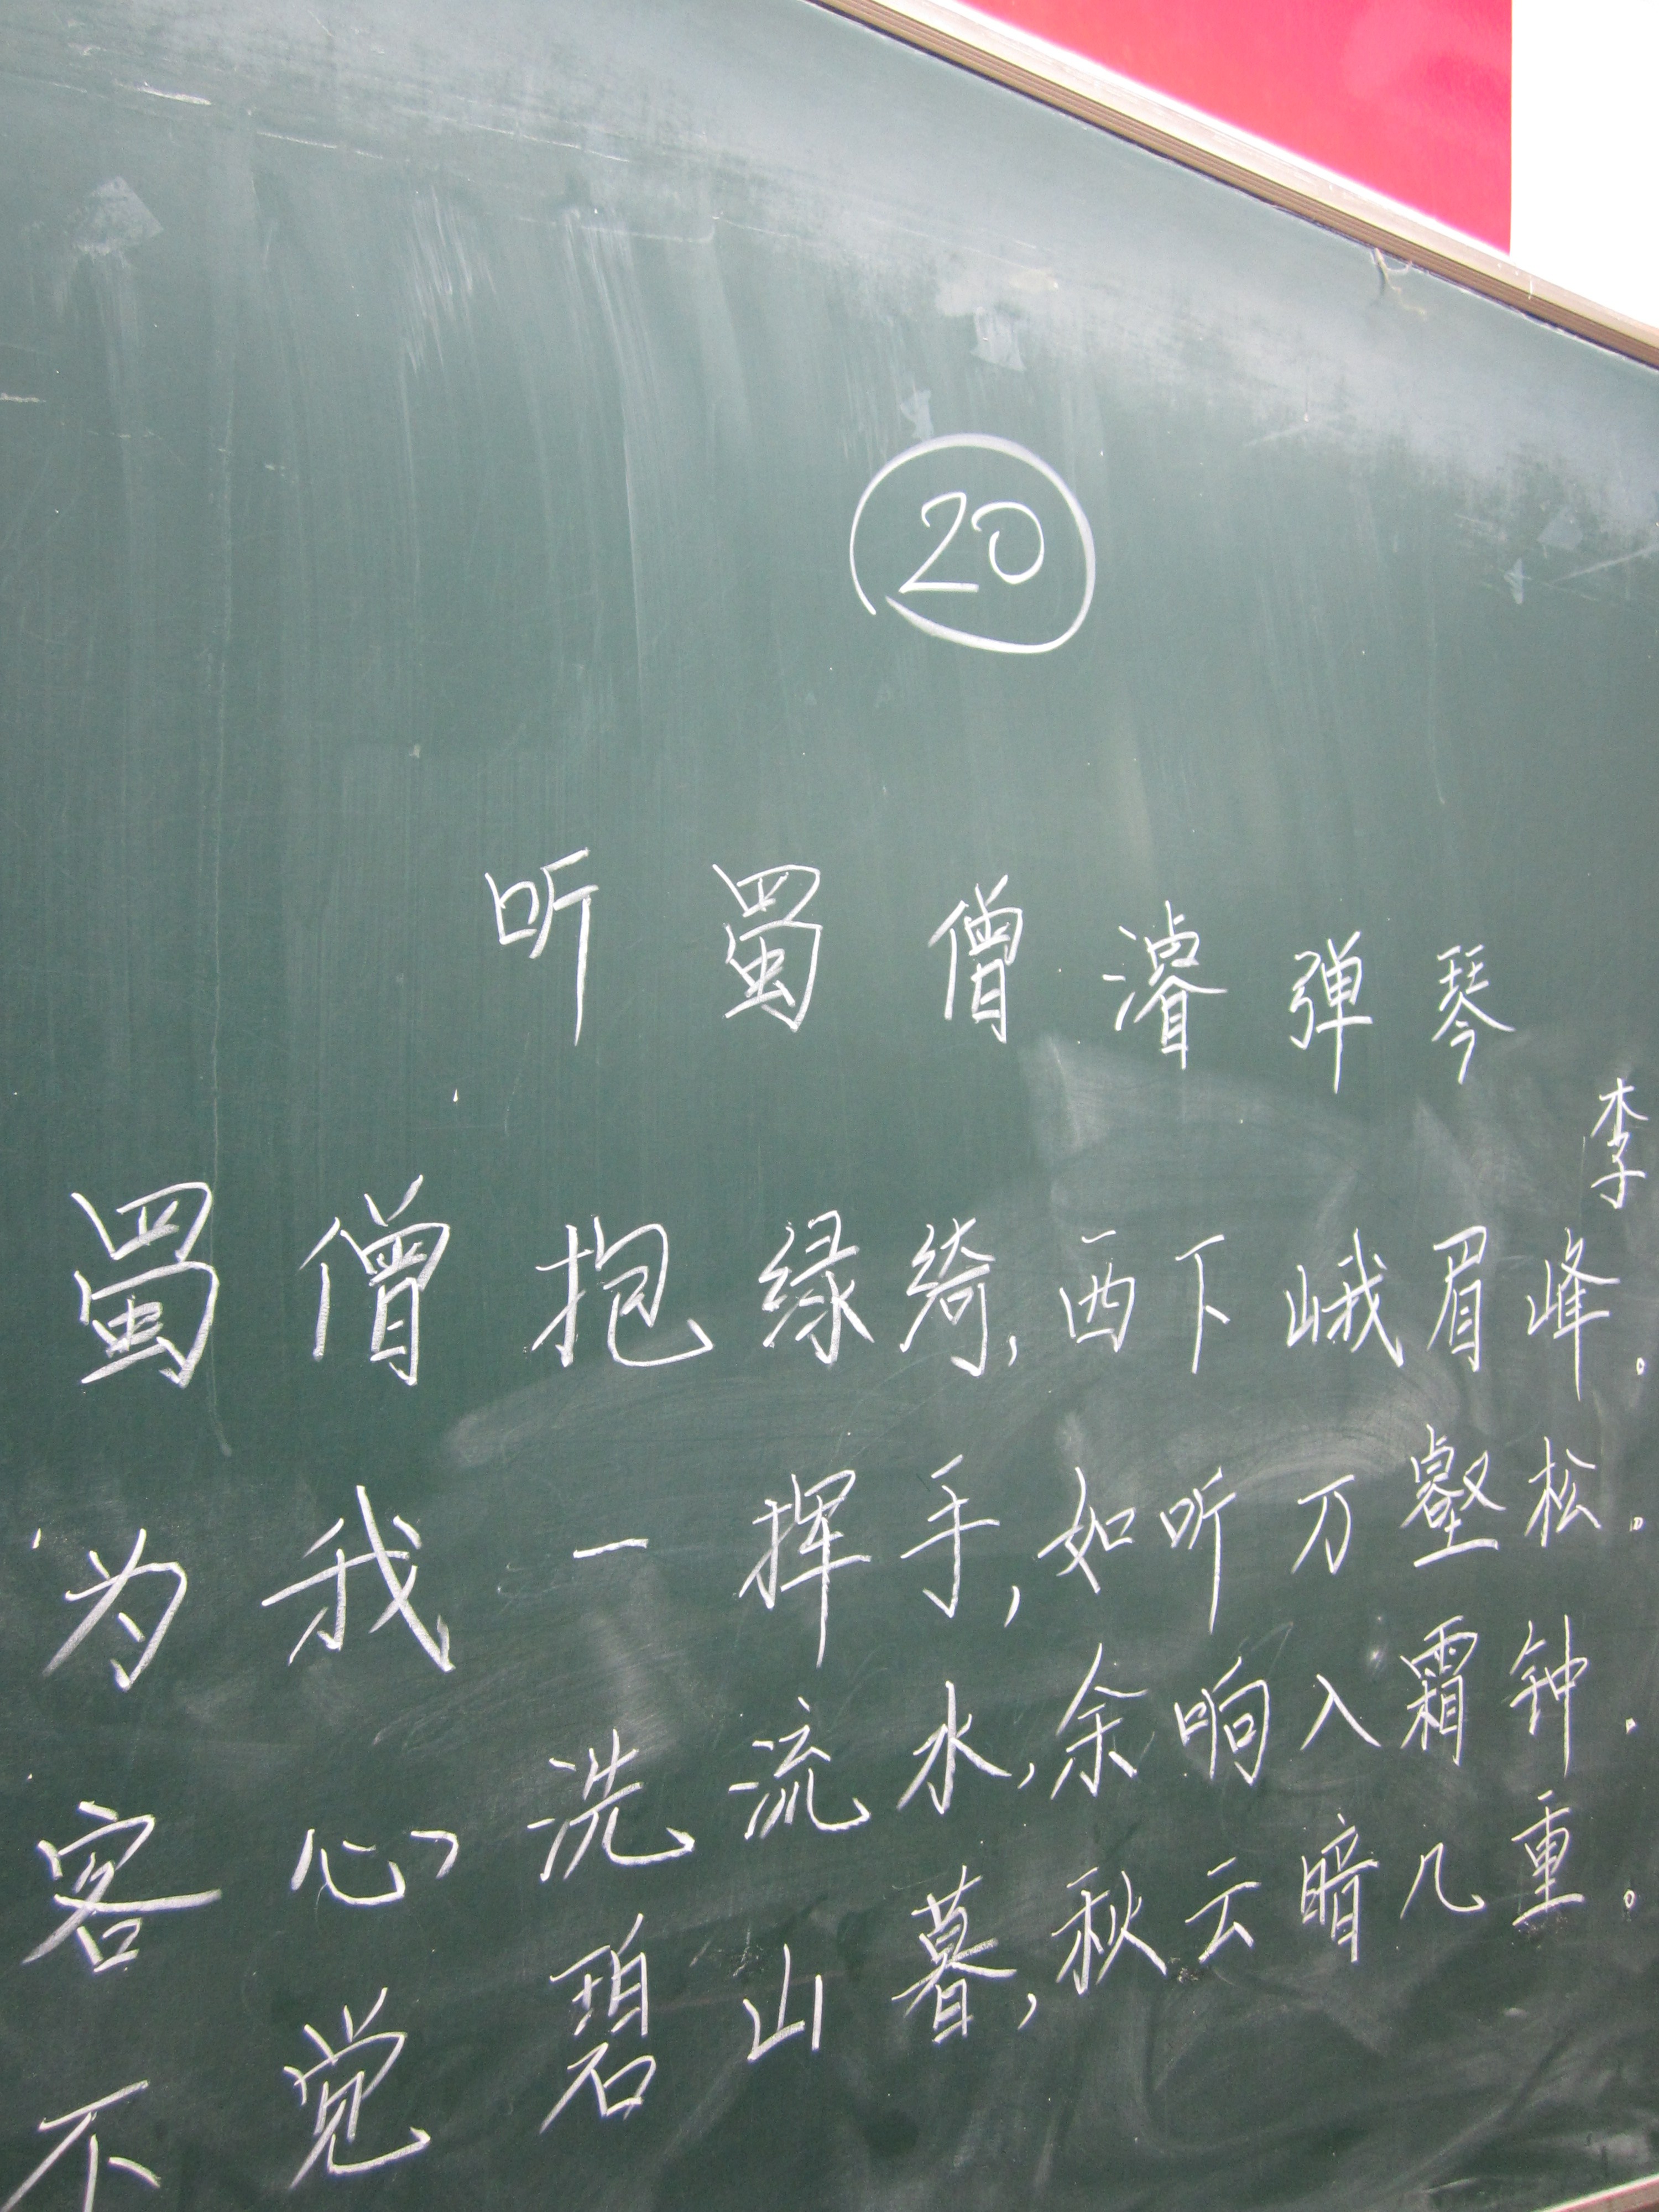 20
听蜀僧濬弹琴
李
蜀僧抱绿绮,西下峨眉峰。
为我一挥手,如听万壑松。
客心洗流水,余响入霜钟.
不觉碧山暮,秋云暗几重。